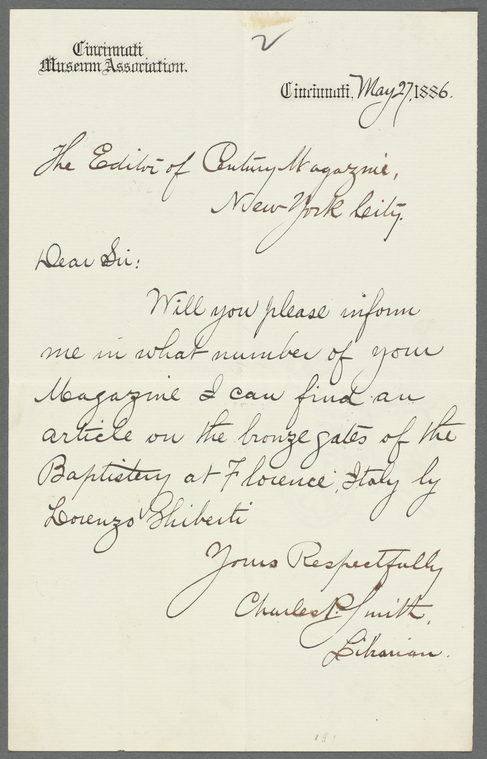 Cincinnati
Museum Association.
Cincinnati, May 27, 1886.
The Editor of Century Magazine,
New York City.
Dear Sir:
Will you please inform
me in what number of your
Magazine I can find an
article on the bronze gates of the
Baptistery at Florence, Italy by
Lorenzo Ghiberti
Yours Respectfully
Charles P. Smith,
Librarian.